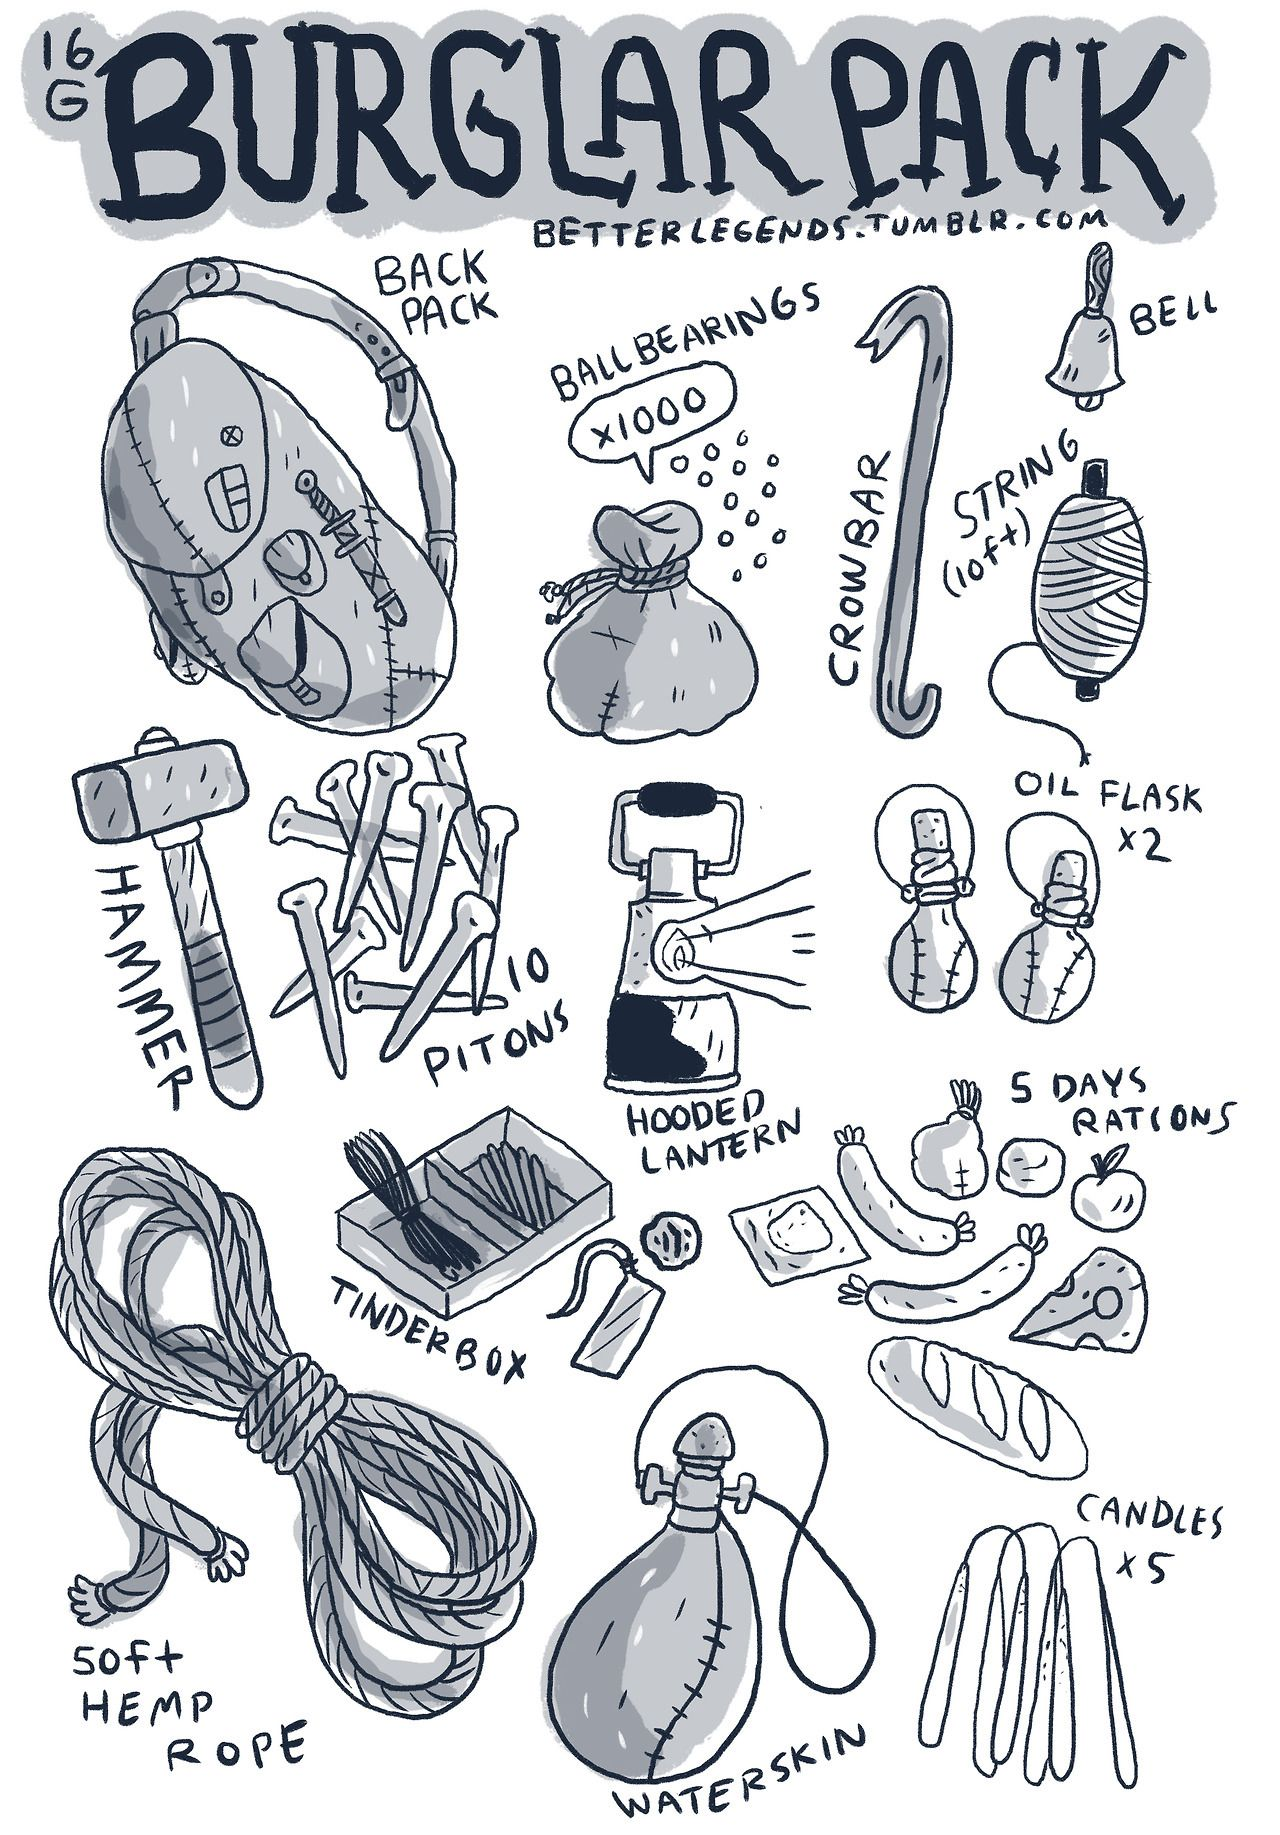 16
G
BURGLAR PACK
BETTERLEGENDS.TUMBLR.COM
BACK
PACK
BALL BEARINGS
x1000
CROWBAR
BELL
STRING
(10ft)
HAMMER
10
PITONS
HOODED
LANTERN
OIL FLASK
x2
5 DAYS
RATIONS
TINDERBOX
50ft
HEMP
ROPE
WATERSKIN
CANDLES
x5